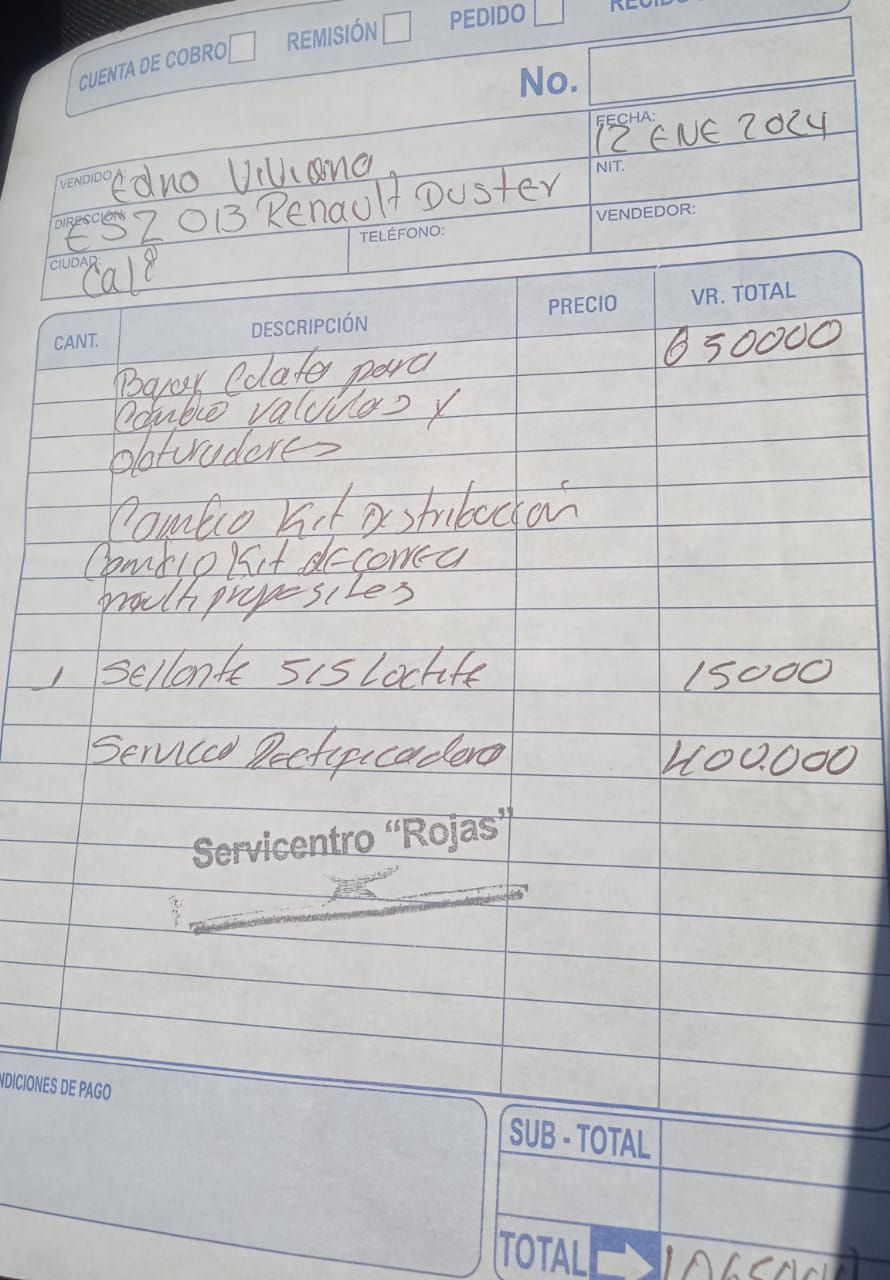 CUENTA DE COBRO REMISIÓN PEDIDO
No.
FECHA:
12 ENE 2024
VENDIDO A: Edna Viviana
NIT.
DIRECCIÓN: ESZ 013 Renault Duster
TELÉFONO:
VENDEDOR:
CIUDAD: Cali
CANT. DESCRIPCIÓN PRECIO VR. TOTAL
Bajar Culata para 650000
Cambio valvulas y
obturadores
Cambio Kit Distribución
Cambio Kit de correa
multipropositos
1 Sellante 515 Loctite 15000
Servicio Rectificadora 400.000
Servicentro "Rojas"
NDICIONES DE PAGO
SUB - TOTAL
TOTAL 1065000